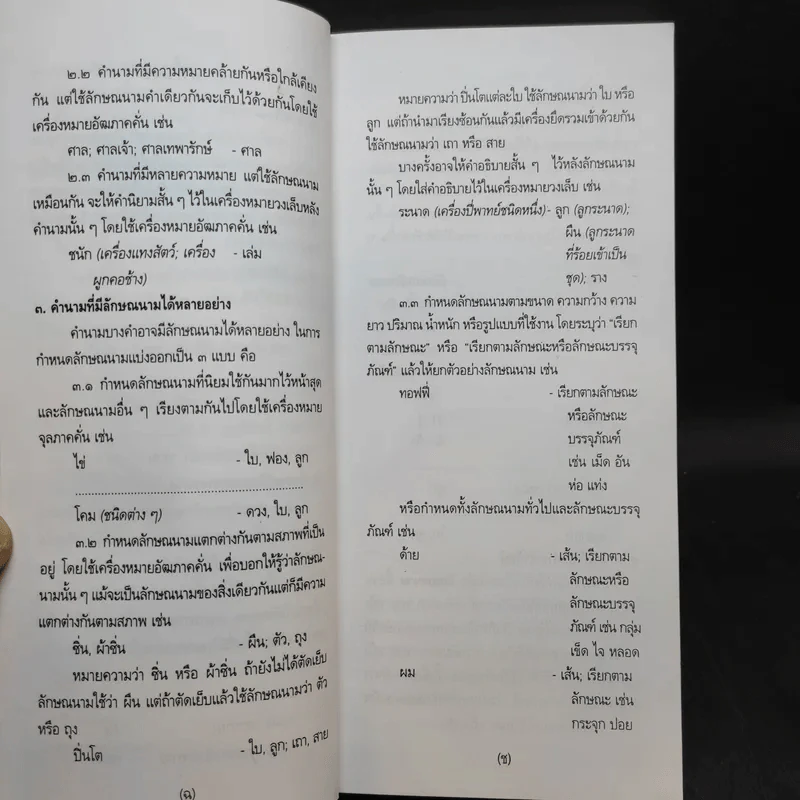 ๒.๒ คำนามที่มีความหมายคล้ายกันหรือใกล้เคียง
กัน แต่ใช้ลักษณนามคำเดียวกันจะเก็บไว้ด้วยกันโดยใช้
เครื่องหมายอัฒภาคคั่น เช่น
ศาล; ศาลเจ้า; ศาลเทพารักษ์ - ศาล
๒.๓ คำนามที่มีหลายความหมาย แต่ใช้ลักษณนาม
เหมือนกัน จะให้คำนิยามสั้น ๆ ไว้ในเครื่องหมายวงเล็บหลัง
คำนามนั้น ๆ โดยใช้เครื่องหมายอัฒภาคคั่น เช่น
ชนัก (เครื่องแทงสัตว์; เครื่อง - เล่ม
ผูกคอช้าง)
๓. คำนามที่มีลักษณนามได้หลายอย่าง
คำนามบางคำอาจมีลักษณนามได้หลายอย่าง ในการ
กำหนดลักษณนามแบ่งออกเป็น ๓ แบบ คือ
๓.๑ กำหนดลักษณนามที่นิยมใช้กันมากไว้หน้าสุด
และลักษณนามอื่น ๆ เรียงตามกันไปโดยใช้เครื่องหมาย
จุลภาคคั่น เช่น
ไข่ - ใบ, ฟอง, ลูก
........................................................
โคม (ชนิดต่าง ๆ) - ดวง, ใบ, ลูก
๓.๒ กำหนดลักษณนามแตกต่างกันตามสภาพที่เป็น
อยู่ โดยใช้เครื่องหมายอัฒภาคคั่น เพื่อบอกให้รู้ว่าลักษณ-
นามนั้น ๆ แม้จะเป็นลักษณนามของสิ่งเดียวกันแต่ก็มีความ
แตกต่างกันตามสภาพ เช่น
ซิ่น, ผ้าซิ่น - ผืน; ตัว, ถุง
หมายความว่า ซิ่น หรือ ผ้าซิ่น ถ้ายังไม่ได้ตัดเย็บ
ลักษณนามใช้ว่า ผืน แต่ถ้าตัดเย็บแล้วใช้ลักษณนามว่า ตัว
หรือ ถุง
ปิ่นโต - ใบ, ลูก; เถา, สาย
(ฉ)
หมายความว่า ปิ่นโตแต่ละใบ ใช้ลักษณนามว่า ใบ หรือ
ลูก แต่ถ้านำมาเรียงซ้อนกันแล้วมีเครื่องยึดรวมเข้าด้วยกัน
ใช้ลักษณนามว่า เถา หรือ สาย
บางครั้งอาจให้คำอธิบายสั้น ๆ ไว้หลังลักษณนาม
นั้น ๆ โดยใส่คำอธิบายไว้ในเครื่องหมายวงเล็บ เช่น
ระนาด (เครื่องปี่พาทย์ชนิดหนึ่ง)- ลูก (ลูกระนาด);
ผืน (ลูกระนาด
ที่ร้อยเข้าเป็น
ชุด); ราง
๓.๓ กำหนดลักษณนามตามขนาด ความกว้าง ความ
ยาว ปริมาณ น้ำหนัก หรือรูปแบบที่ใช้งาน โดยระบุว่า "เรียก
ตามลักษณะ" หรือ "เรียกตามลักษณะหรือลักษณะบรรจุ
ภัณฑ์" แล้วให้ยกตัวอย่างลักษณนาม เช่น
ทอฟฟี่ - เรียกตามลักษณะ
หรือลักษณะ
บรรจุภัณฑ์
เช่น เม็ด อัน
ห่อ แท่ง
หรือกำหนดทั้งลักษณนามทั่วไปและลักษณะบรรจุ
ภัณฑ์ เช่น
ด้าย - เส้น; เรียกตาม
ลักษณะหรือ
ลักษณะบรรจุ
ภัณฑ์ เช่น กลุ่ม
เข็ด ไจ หลอด
ผม - เส้น; เรียกตาม
ลักษณะ เช่น
กระจุก ปอย
(ช)